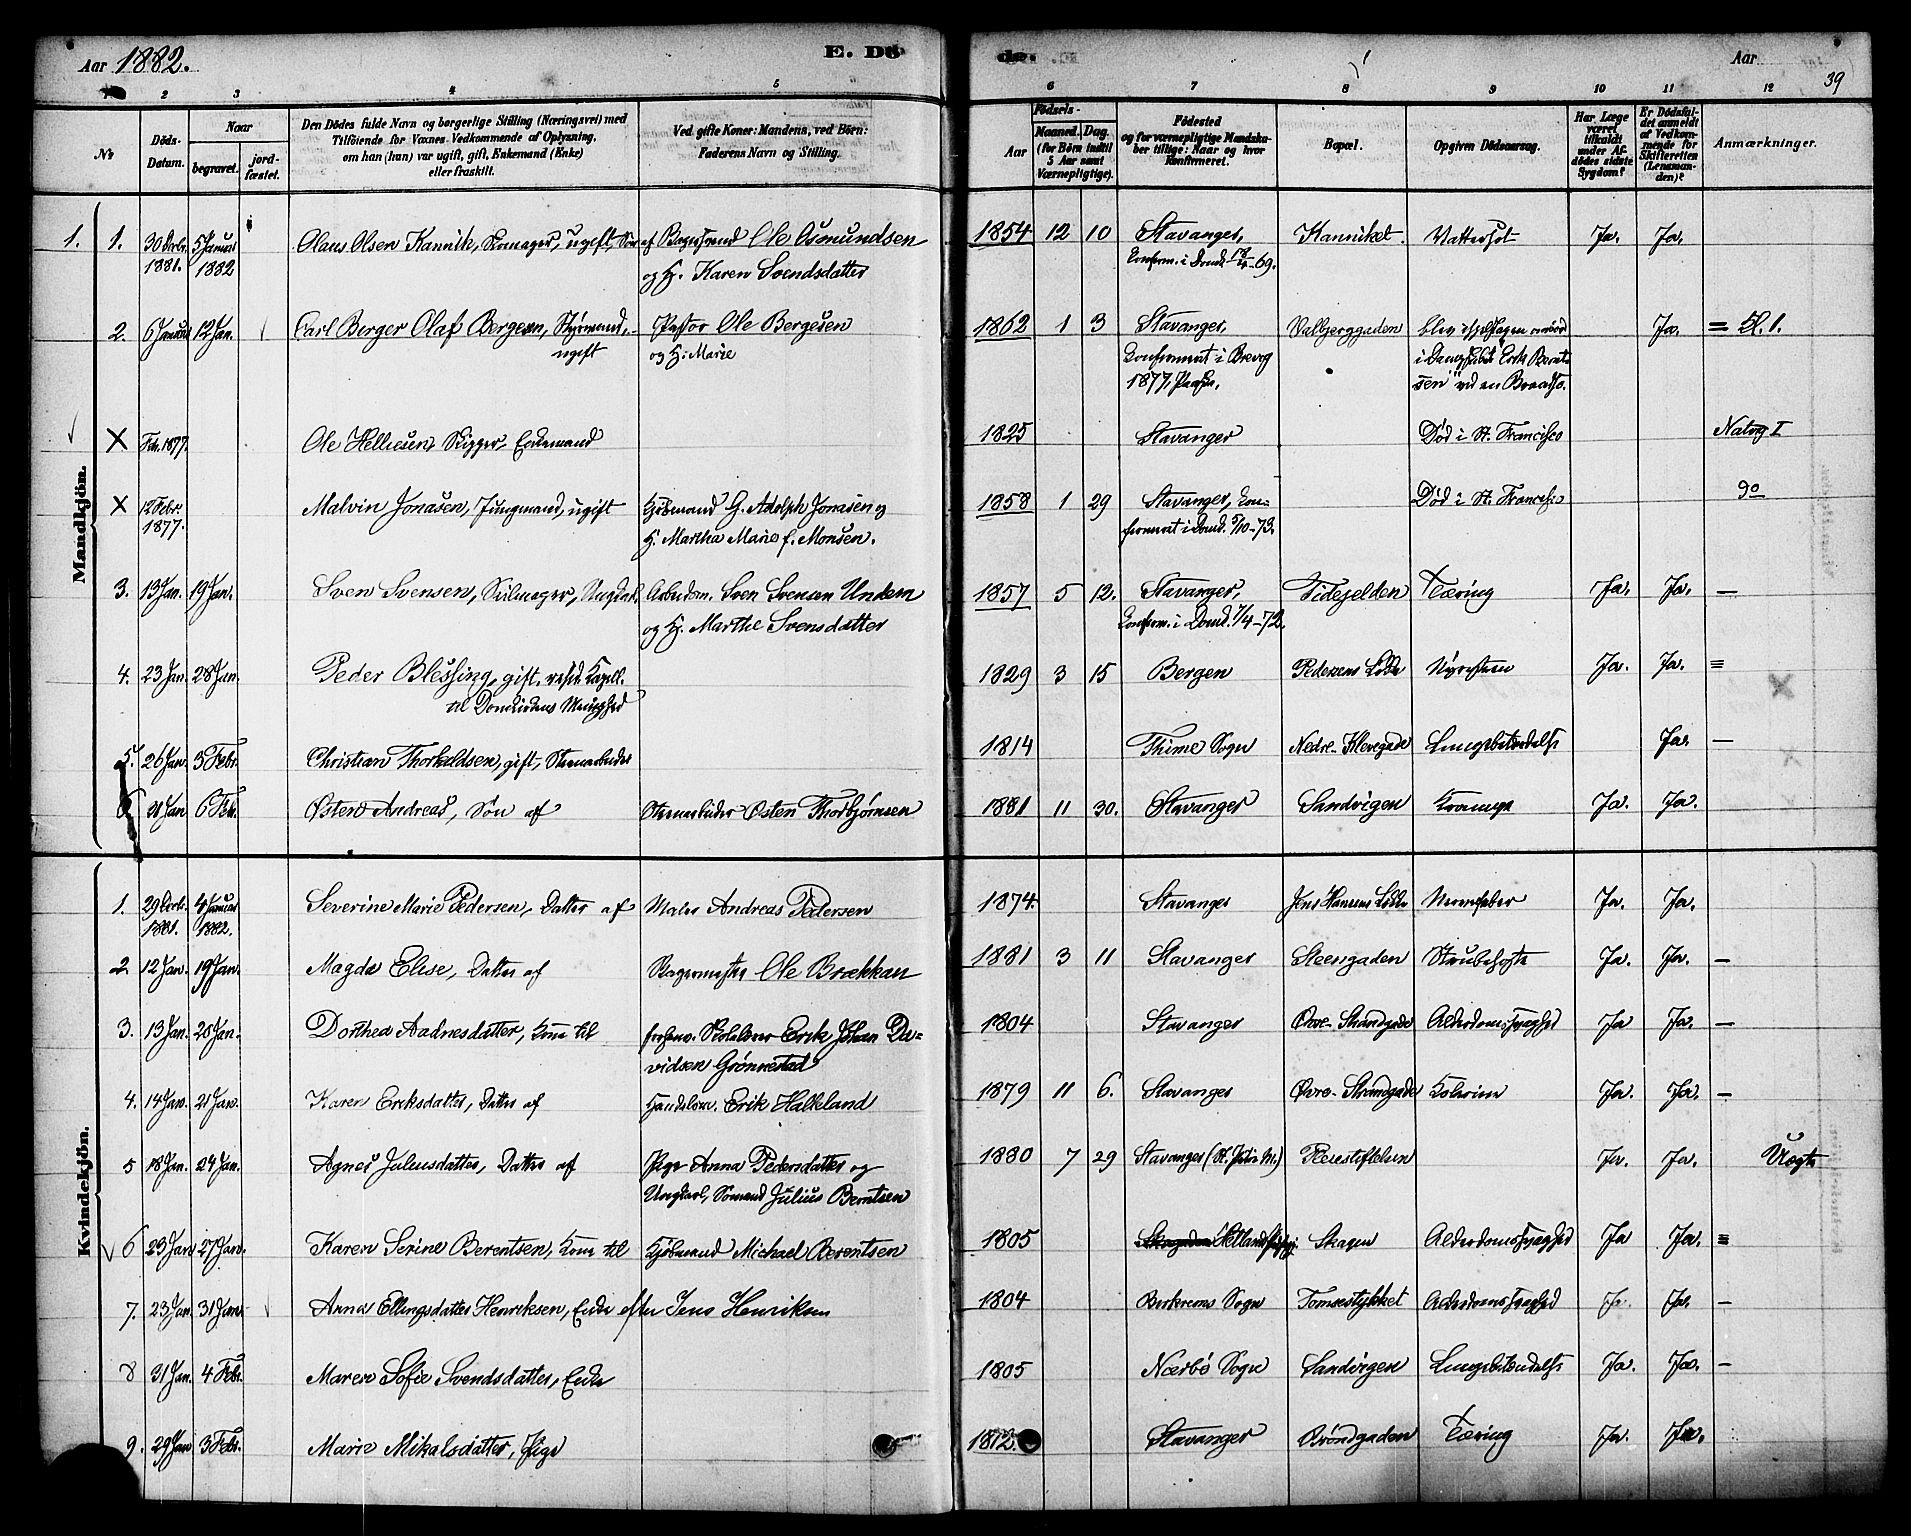 Aar 1882. E. Dö-
de. Aar 39
1 2 3 4 5 6 7 8 9 10 11 12
No
Döds-Datum.
Naar
begravet.
jord-fæstet.
Den Dödes fulde Navn og borgerlige Stilling (Næringsvei) med
Tilföiende for Voxnes Vedkommende af Oplysning,
om han (hun) var ugift, gift, Enkemand (Enke)
eller fraskilt.
Ved gifte Koner: Mandens, ved Börn:
Faderens Navn og Stilling.
Födsels-
Aar
Maaned. Dag.
(for Börn indtil
5 Aar samt
Værnepligtige).
Födested
og for værnepligtige Mandska-
ber tillige: Naar og hvor
Konfirmeret.
Bopæl.
Opgiven Dödsaarsag.
Har Læge
været
tilkaldt
under Af-
dödes sidste
Sygdom?
Er Dödsfal-
det anmeldt
af Vedkom-
mende for
Skifteretten
(Lensman-
den)?
Anmærkninger.
Mandkjön.
1. 1. 30 Decbr. 1881. 5 Januar 1882 Olaus Olsen Kannik, Skomager, ugift, Søn af Ole Osmundsen 1854 12 10 Stavanger, Kanniket. Vattersot Ja. Ja.
og H. Karen Svendsdatter Konfirm. i Domk. 18/4-69.
2. 6 Januar 12 Jan. Carl Berger Olaf Bergesen, Styrmand, Pastor Ole Bergesen 1862 1 3 Stavanger, Valbjerggaden blev ihjelslagen ombord Ja. = El. 1.
ugift og H. Marie Konfirmeret i Brevig i Dampskibet Erik Bernt-
1877, sen" ved en
X Feb. 1877. Ole Helliesen, Skipper, Enkemand 1825 Stavanger Död i St. Francisco Natvig I
X 12 Febr. 1877. Malvin Jonasen, Jungmand, ugift Kjøbmand G. Adolph Jonasen og 1858 1 29 Stavanger, Kon- Död i St. Francisco do
H. Martha Marie f. Monsen. firmeret i Domk. 5/10-73.
3. 13 Jan. 19 Jan. Sven Svensen, Seilmager, Ungkarl, Arbeidsm. Sven Svensen Undem 1857 5 12. Stavanger, Videfjelden Tæring Ja. Ja. —
og H. Marthe Svensdatter Konfirm. i Domk. 7/4-72.
4. 23 Jan. 28 Jan. Peder Blessing, gift, resid. Kapell. 1829 3 15 Bergen Pedersens Løkke Nyresteen Ja. Ja. =
til Domkirkens Menighed
5. 26 Jan. 3 Febr. Christian Thorkeldsen, gift, Steenarbeider 1814 Thime Sogn Nedre Klevegade Lungebetændelse Ja. —
6 21 Jan 6 Feb. Østen Andreas, Søn af Steenarbeider Østen Thorbjørnsen 1881 11 30. Stavanger Sandvigen Krampe Ja. Ja.
Kvindekjön.
1. 29 Decbr. 1881. 4 Januar 1882. Severine Marie Pedersen, Datter af Maler Andreas Pedersen 1874. Stavanger Jens Hansens Løkke Nervefeber Ja. Ja.
2 12 Jan. 19 Jan. Magda Elise, Datter af Bagermester Ole Brækkan 1881 3 11 Stavanger Steengaden Strubehoste Ja. Ja. —
3. 13 Jan. 20 Jan. Dorthea Aadnesdatter, Kone til forhenv. Skolelærer Erik Johan Da- 1804 Stavanger Øvre Strandgade Alderdomssvaghed Ja Ja. —
vidsen Grønnestad
4. 14 Jan. 21 Jan. Karen Eriksdatter, Datter af Handelsm. Erik Halkeland 1879 11 6. Stavanger Øvre Strandgade Kolerine Ja. Ja. —
5 18 Jan. 24 Jan. Agnes Juliusdatter, Datter af Pige Anna Pedersdatter og 1880 7 29 Stavanger (St. Petri M.) Pleiestiftelsen Ja. Ja. Uægte
Ungkarl, Sømand Julius Berntsen
6 23 Jan 27 Jan. Karen Serine Berentsen, Kone til Kjøbmand Michael Berentsen 1805 Skagen Alderdomssvaghed Ja Ja. =
7. 23 Jan. 31 Jan. Anna Ellingsdatter Henriksen, Enke efter Jens Henriksen 1804 Birkrems Sogn Tomsestykket Alderdomssvaghed Ja. Ja. —
8 31 Jan. 4 Febr. Maren Sofie Svendsdatter, Enke 1805 Nærbø Sogn Sandvigen Lungebetændelse Ja. Ja. —
9. 29 Jan 3 Febr. Marie Mikalsdatter, Pige 1812. Stavanger Brøndgaden Tæring Ja. Ja.